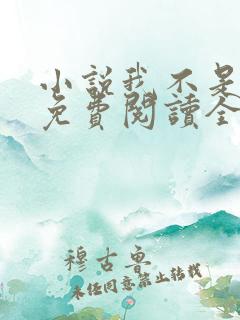 小說我不是
免費閱讀全
穆古魯
未經同意禁止轉載